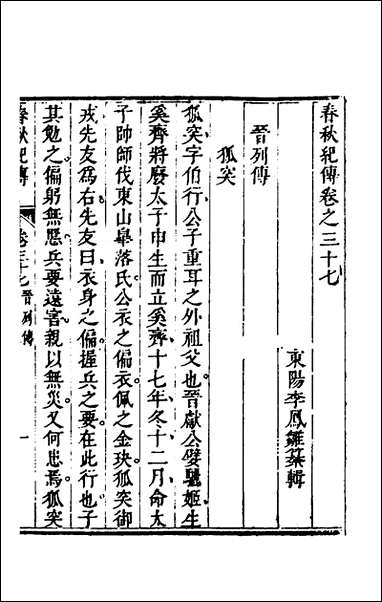 春秋紀傳卷之三十七
東陽李鳳雛纂輯
晉列傳
狐突
狐突字伯行公子重耳之外祖父也晉獻公嬖驪姬生
奚齊將廢太子申生而立奚齊十七年冬十二月命太
子帥師伐東山皋落氏公衣之偏衣佩之金玦狐突御
戎先友為右先友曰衣身之偏握兵之要在此行也子
其勉之偏躬無慝兵要遠害親以無災又何患焉狐突
春秋紀傳 卷三十七 晉列傳 一